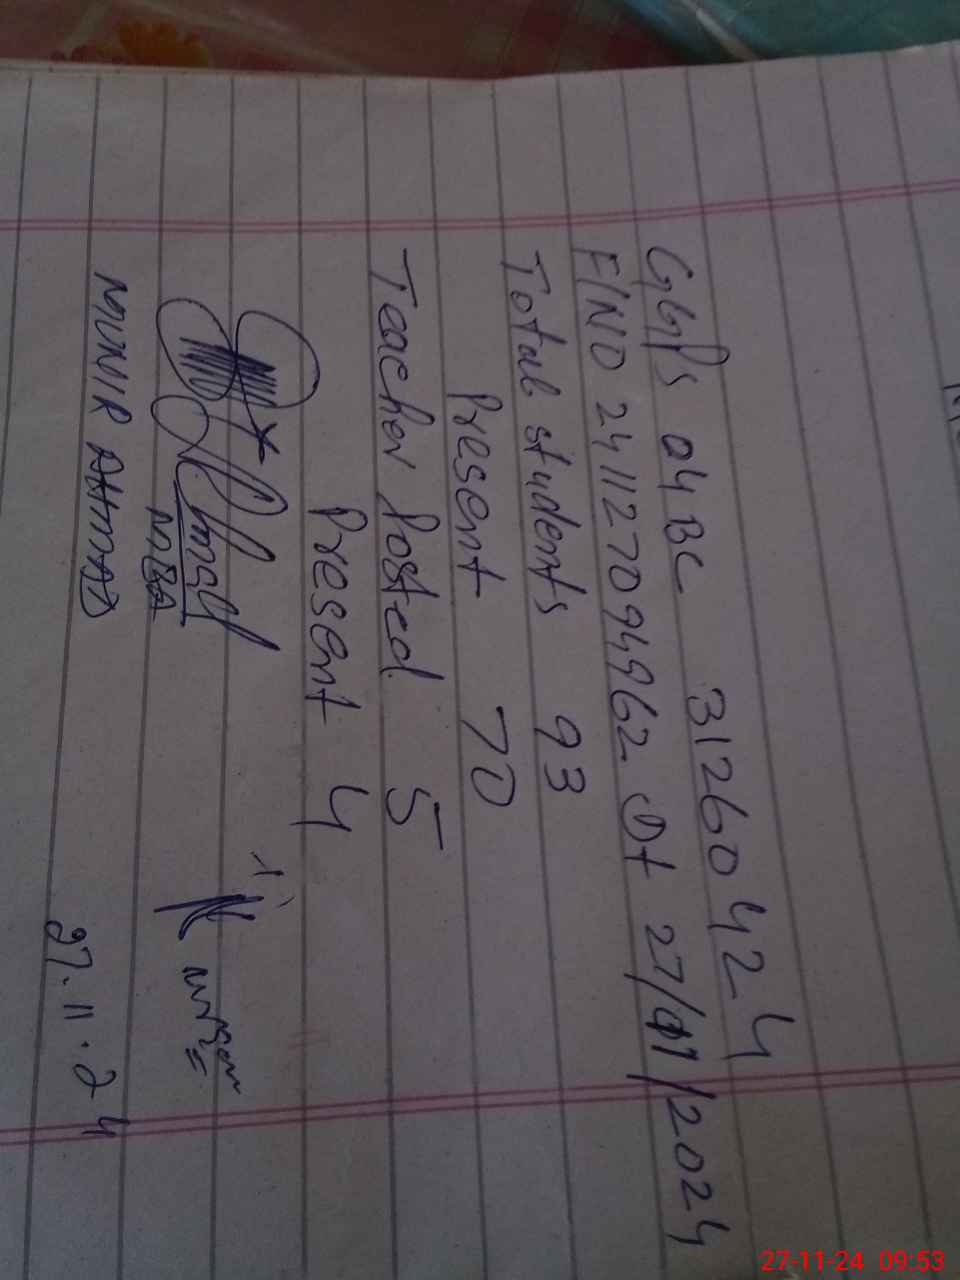 GGPS 04 BC 31260424
FIND 241127094962 Dt 27/11/2024
Total students 93
Present 70
Teacher Posted 5
Present 4
MBA
MUNIR AHMAD 27.11.24
27-11-24 09:53